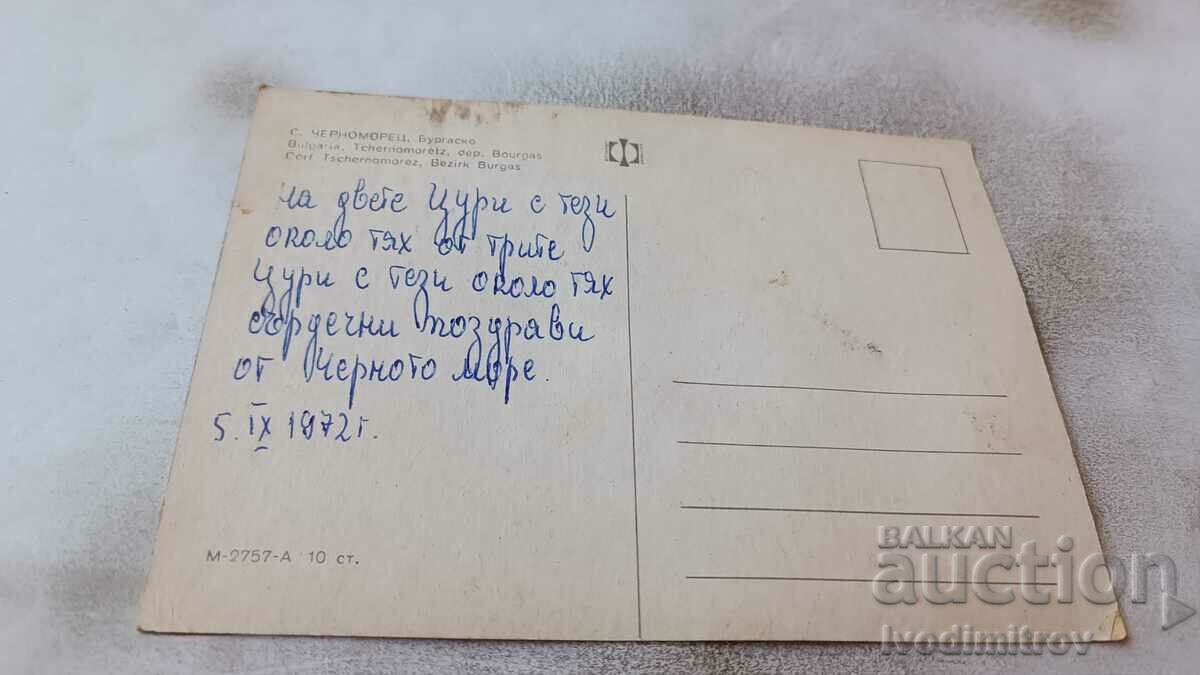 С. ЧЕРНОМОРЕЦ, Бургаско
Bulgaria, Tchernomoretz, dep. Bourgas
Dorf Tschernomorez, Bezirk Burgas
На двете Цури с тези
около тях от трите
Цури с тези около тях
сърдечни поздрави
от Черното море.
5. IX 1972 г.
М-2757-А 10 ст.
BALKAN
auction
Ivodimitrov